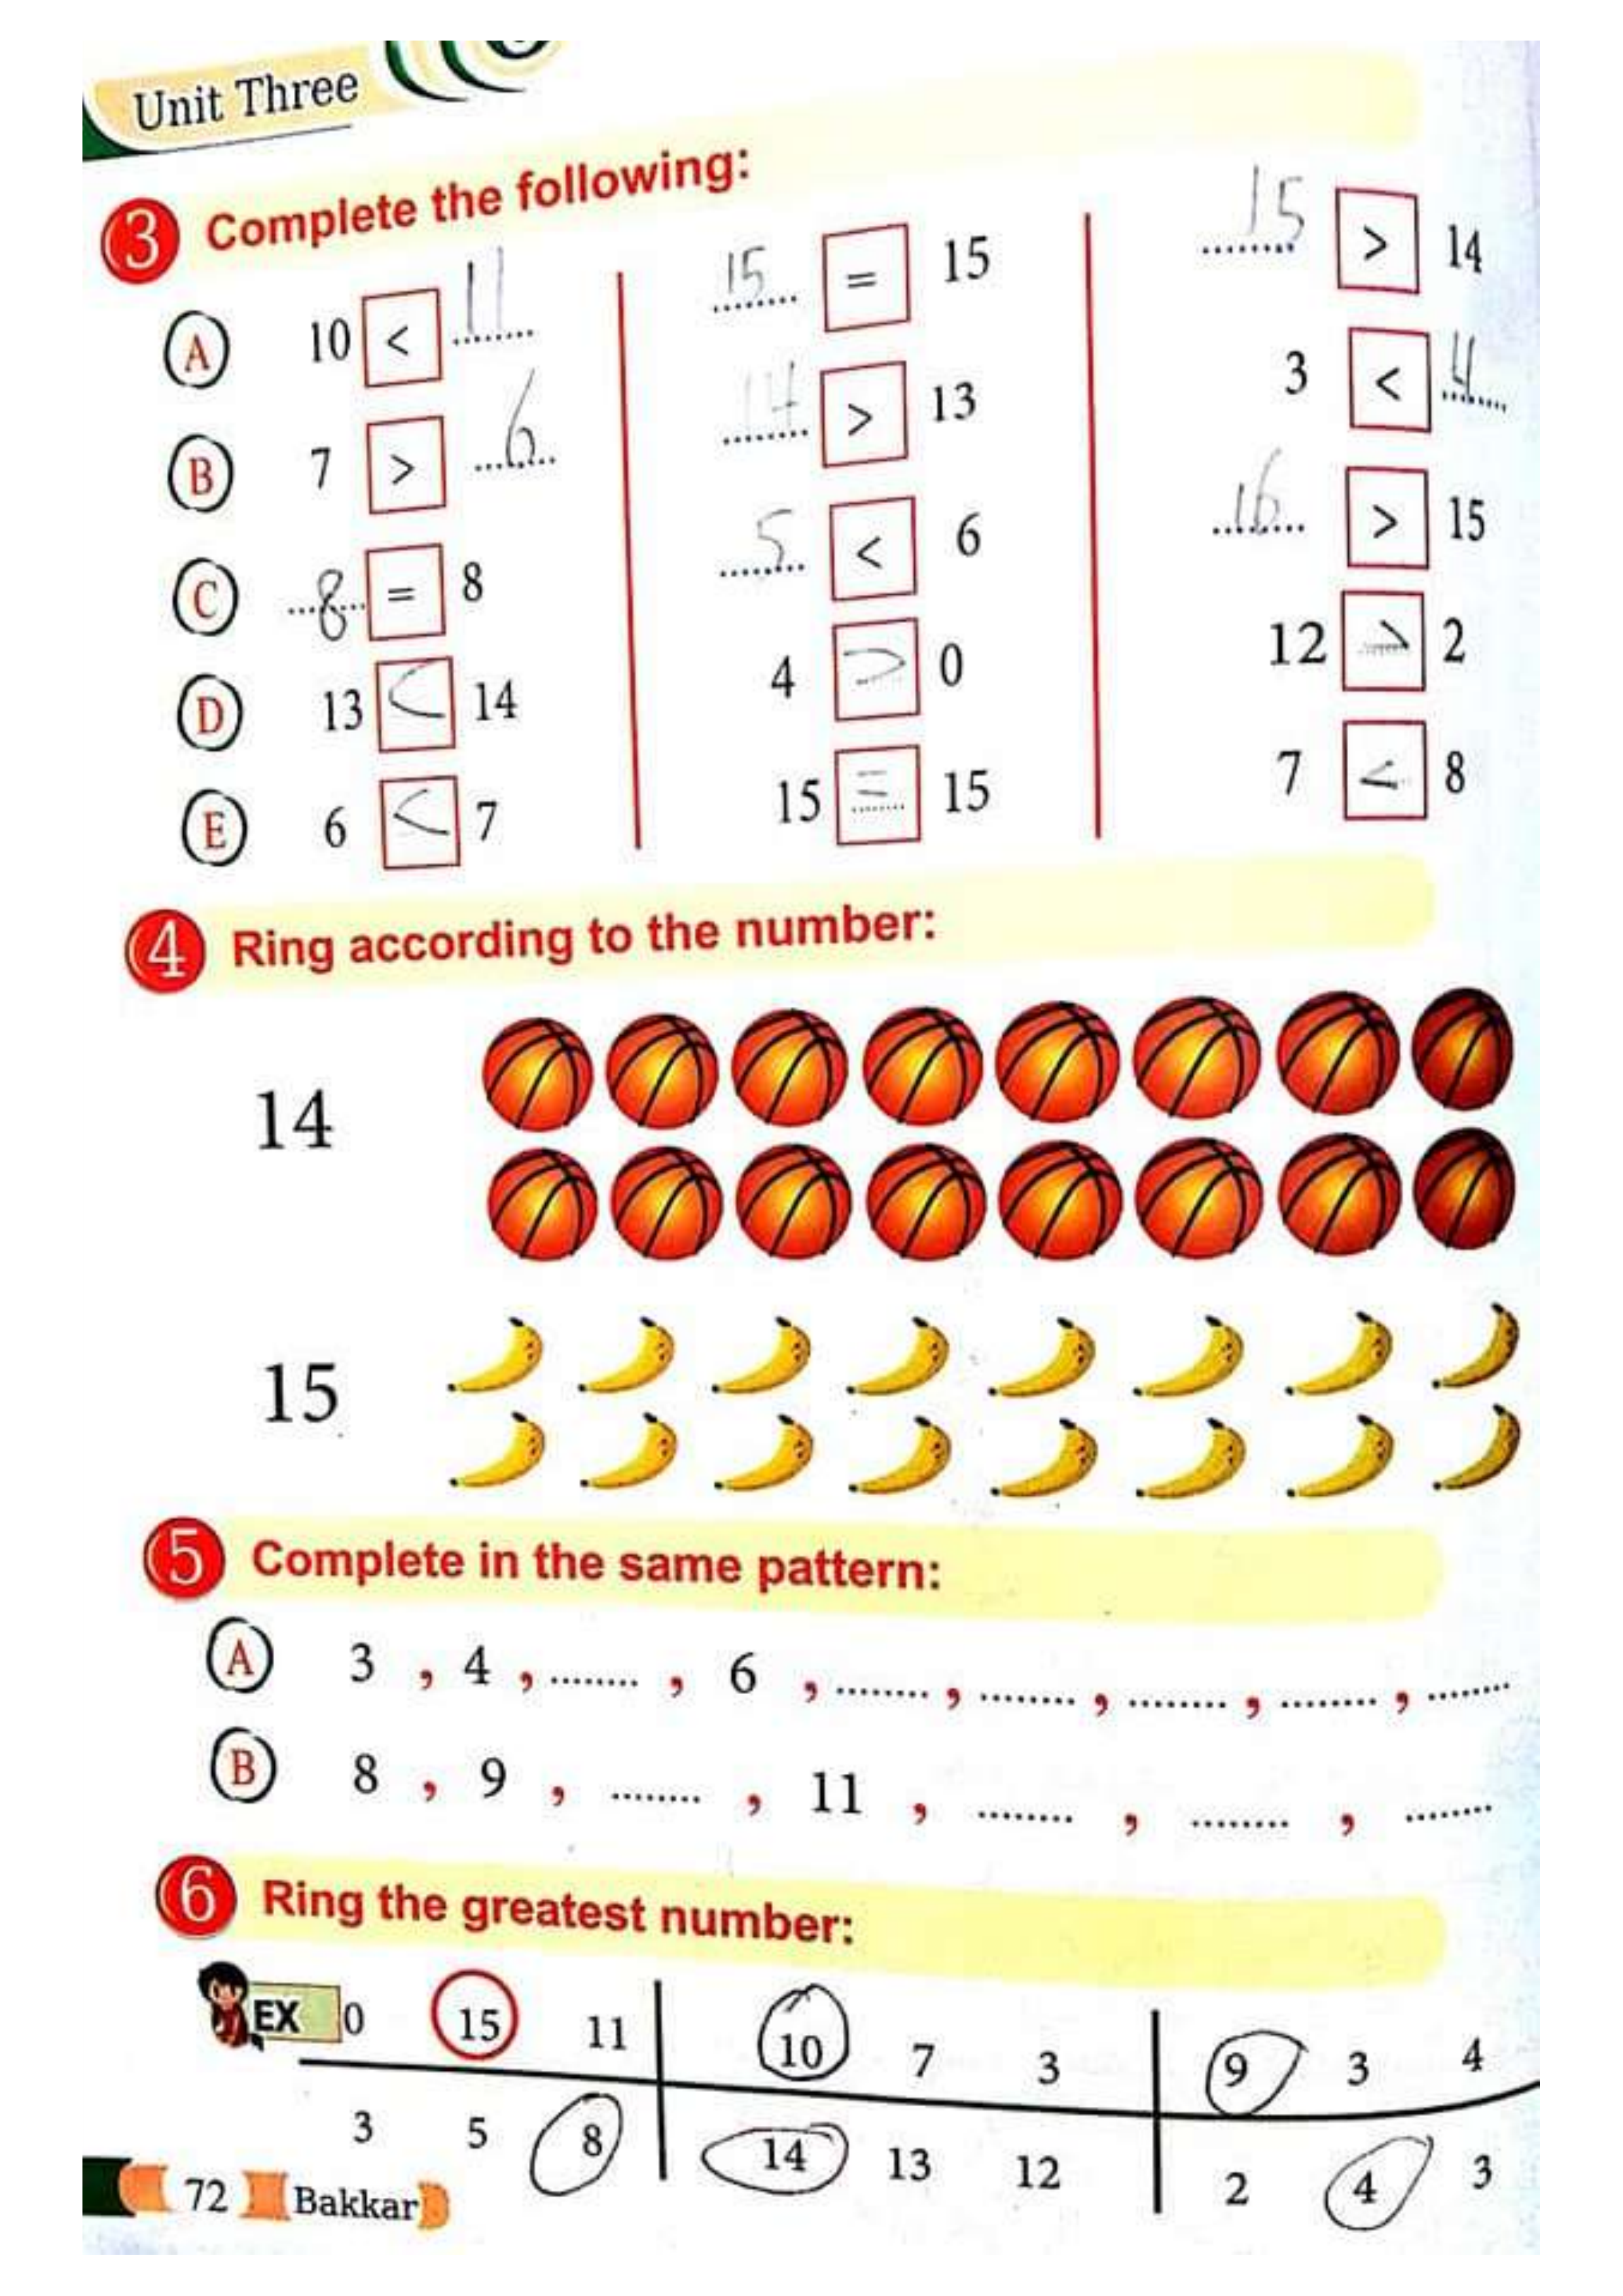 Unit Three
3 Complete the following:
A 10 < 11
15 = 15
15 > 14
B 7 > 6
14 > 13
3 < 4
C 8 = 8
5 < 6
16 > 15
D 13 < 14
4 > 0
12 > 2
E 6 < 7
15 = 15
7 < 8
4 Ring according to the number:
14
15
5 Complete in the same pattern:
A 3 , 4 , ........ , 6 , ........ , ........ , ........ , ........ , ........
B 8 , 9 , ........ , 11 , ........ , ........ , ........
6 Ring the greatest number:
EX 0 15 11
10 7 3
9 3 4
3 5 8
14 13 12
2 4 3
72 Bakkar